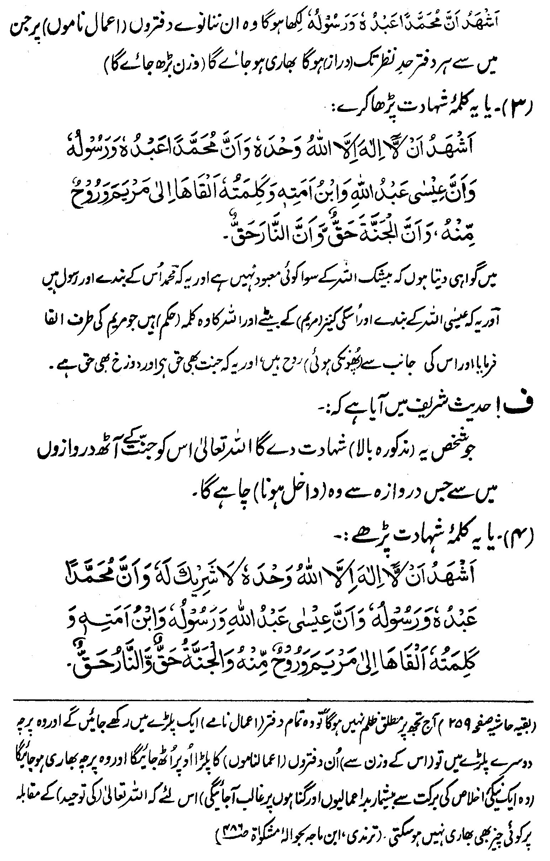 اَشْهَدُ اَنَّ مُحَمَّدًا عَبْدُهٗ وَرَسُوْلُهٗ لکھا ہوگا وہ ان ننانوے دفتروں (اعمال ناموں) پر جن
میں سے ہر دفتر حدِ نظر تک (دراز) ہوگا بھاری ہو جائے گا (وزن بڑھ جائے گا)
(۳)۔ یا یہ کلمۂ شہادت پڑھا کرے:
اَشْهَدُ اَنْ لَّا اِلٰهَ اِلَّا اللهُ وَحْدَهٗ وَاَنَّ مُحَمَّدًا عَبْدُهٗ وَرَسُوْلُهٗ
وَاَنَّ عِيْسٰى عَبْدُ اللهِ وَابْنُ اَمَتِهٖ وَكَلِمَتُهٗ اَلْقَاهَا اِلٰى مَرْيَمَ وَرُوْحٌ
مِّنْهُ، وَاَنَّ الْجَنَّةَ حَقٌّ وَّاَنَّ النَّارَ حَقٌّ۔
میں گواہی دیتا ہوں کہ بیشک اللہ کے سوا کوئی معبود نہیں ہے اور یہ کہ محمد اُس کے بندے اور رسول ہیں
اور یہ کہ عیسٰی اللہ کے بندے اور اُسکی کنیز (مریم) کے بیٹے اور اللہ کا وہ کلمہ (حکم) ہیں جو مریم کی طرف القا
فرمایا اور اس کی جانب سے (پھونکی ہوئی) روح ہیں، اور یہ کہ جنت بھی حق ہی اور دوزخ بھی حق ہے۔
ف! حدیث شریف میں آیا ہے کہ:-
جو شخص یہ (مذکورہ بالا) شہادت دے گا اللہ تعالیٰ اس کو جنت کے آٹھ دروازوں
میں سے جس دروازہ سے وہ (داخل ہونا) چاہے گا۔
(۴)۔ یا یہ کلمۂ شہادت پڑھے:-
اَشْهَدُ اَنْ لَّا اِلٰهَ اِلَّا اللهُ وَحْدَهٗ لَا شَرِيْكَ لَهٗ وَاَنَّ مُحَمَّدًا
عَبْدُهٗ وَرَسُوْلُهٗ وَاَنَّ عِيْسٰى عَبْدُ اللهِ وَرَسُوْلُهٗ وَابْنُ اَمَتِهٖ وَ
كَلِمَتُهٗ اَلْقَاهَا اِلٰى مَرْيَمَ وَرُوْحٌ مِّنْهُ وَالْجَنَّةُ حَقٌّ وَّالنَّارُ حَقٌّ۔
(بقیہ حاشیہ صفحہ ۲۵۹) آج تجھ پر مطلق ظلم نہیں ہوگا تو وہ تمام دفتر (اعمال نامے) ایک پلڑے میں رکھے جائیں گے اور وہ پرچہ
دوسرے پلڑے میں تو (اس کے وزن سے) اُن دفتروں (اعمالناموں) کا پلڑا اُوپر اُٹھ جائیگا اور وہ پرچہ بھاری ہو جائیگا
(وہ ایک نیکی اخلاص کی برکت سے بیشمار بداعمالیوں اور گناہوں پر غالب آجائیگی) اس لئے کہ اللہ تعالیٰ (کی توحید) کے مقابلہ
پر کوئی چیز بھی بھاری نہیں ہو سکتی۔ (ترمذی، ابن ماجہ بحوالہ مشکوٰۃ ص۴۸۶)